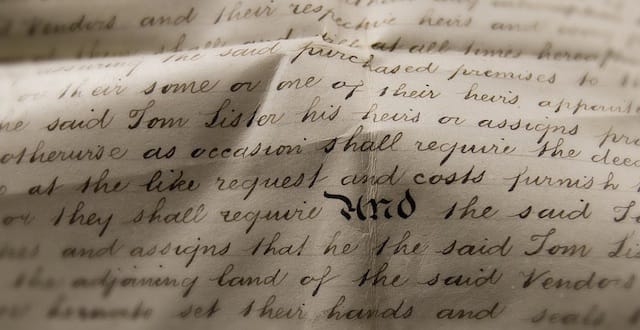 Vendors and their respective heirs and
shall at all times
assuring the said purchased premises to
or their some or one of their heirs
said Tom Lister his heirs or assigns
otherwise as occasion shall require the
at the like request and costs furnish
or they shall require And the said
and assigns that he the said Tom
the adjoining land of the said Vendors
set their hands and seals